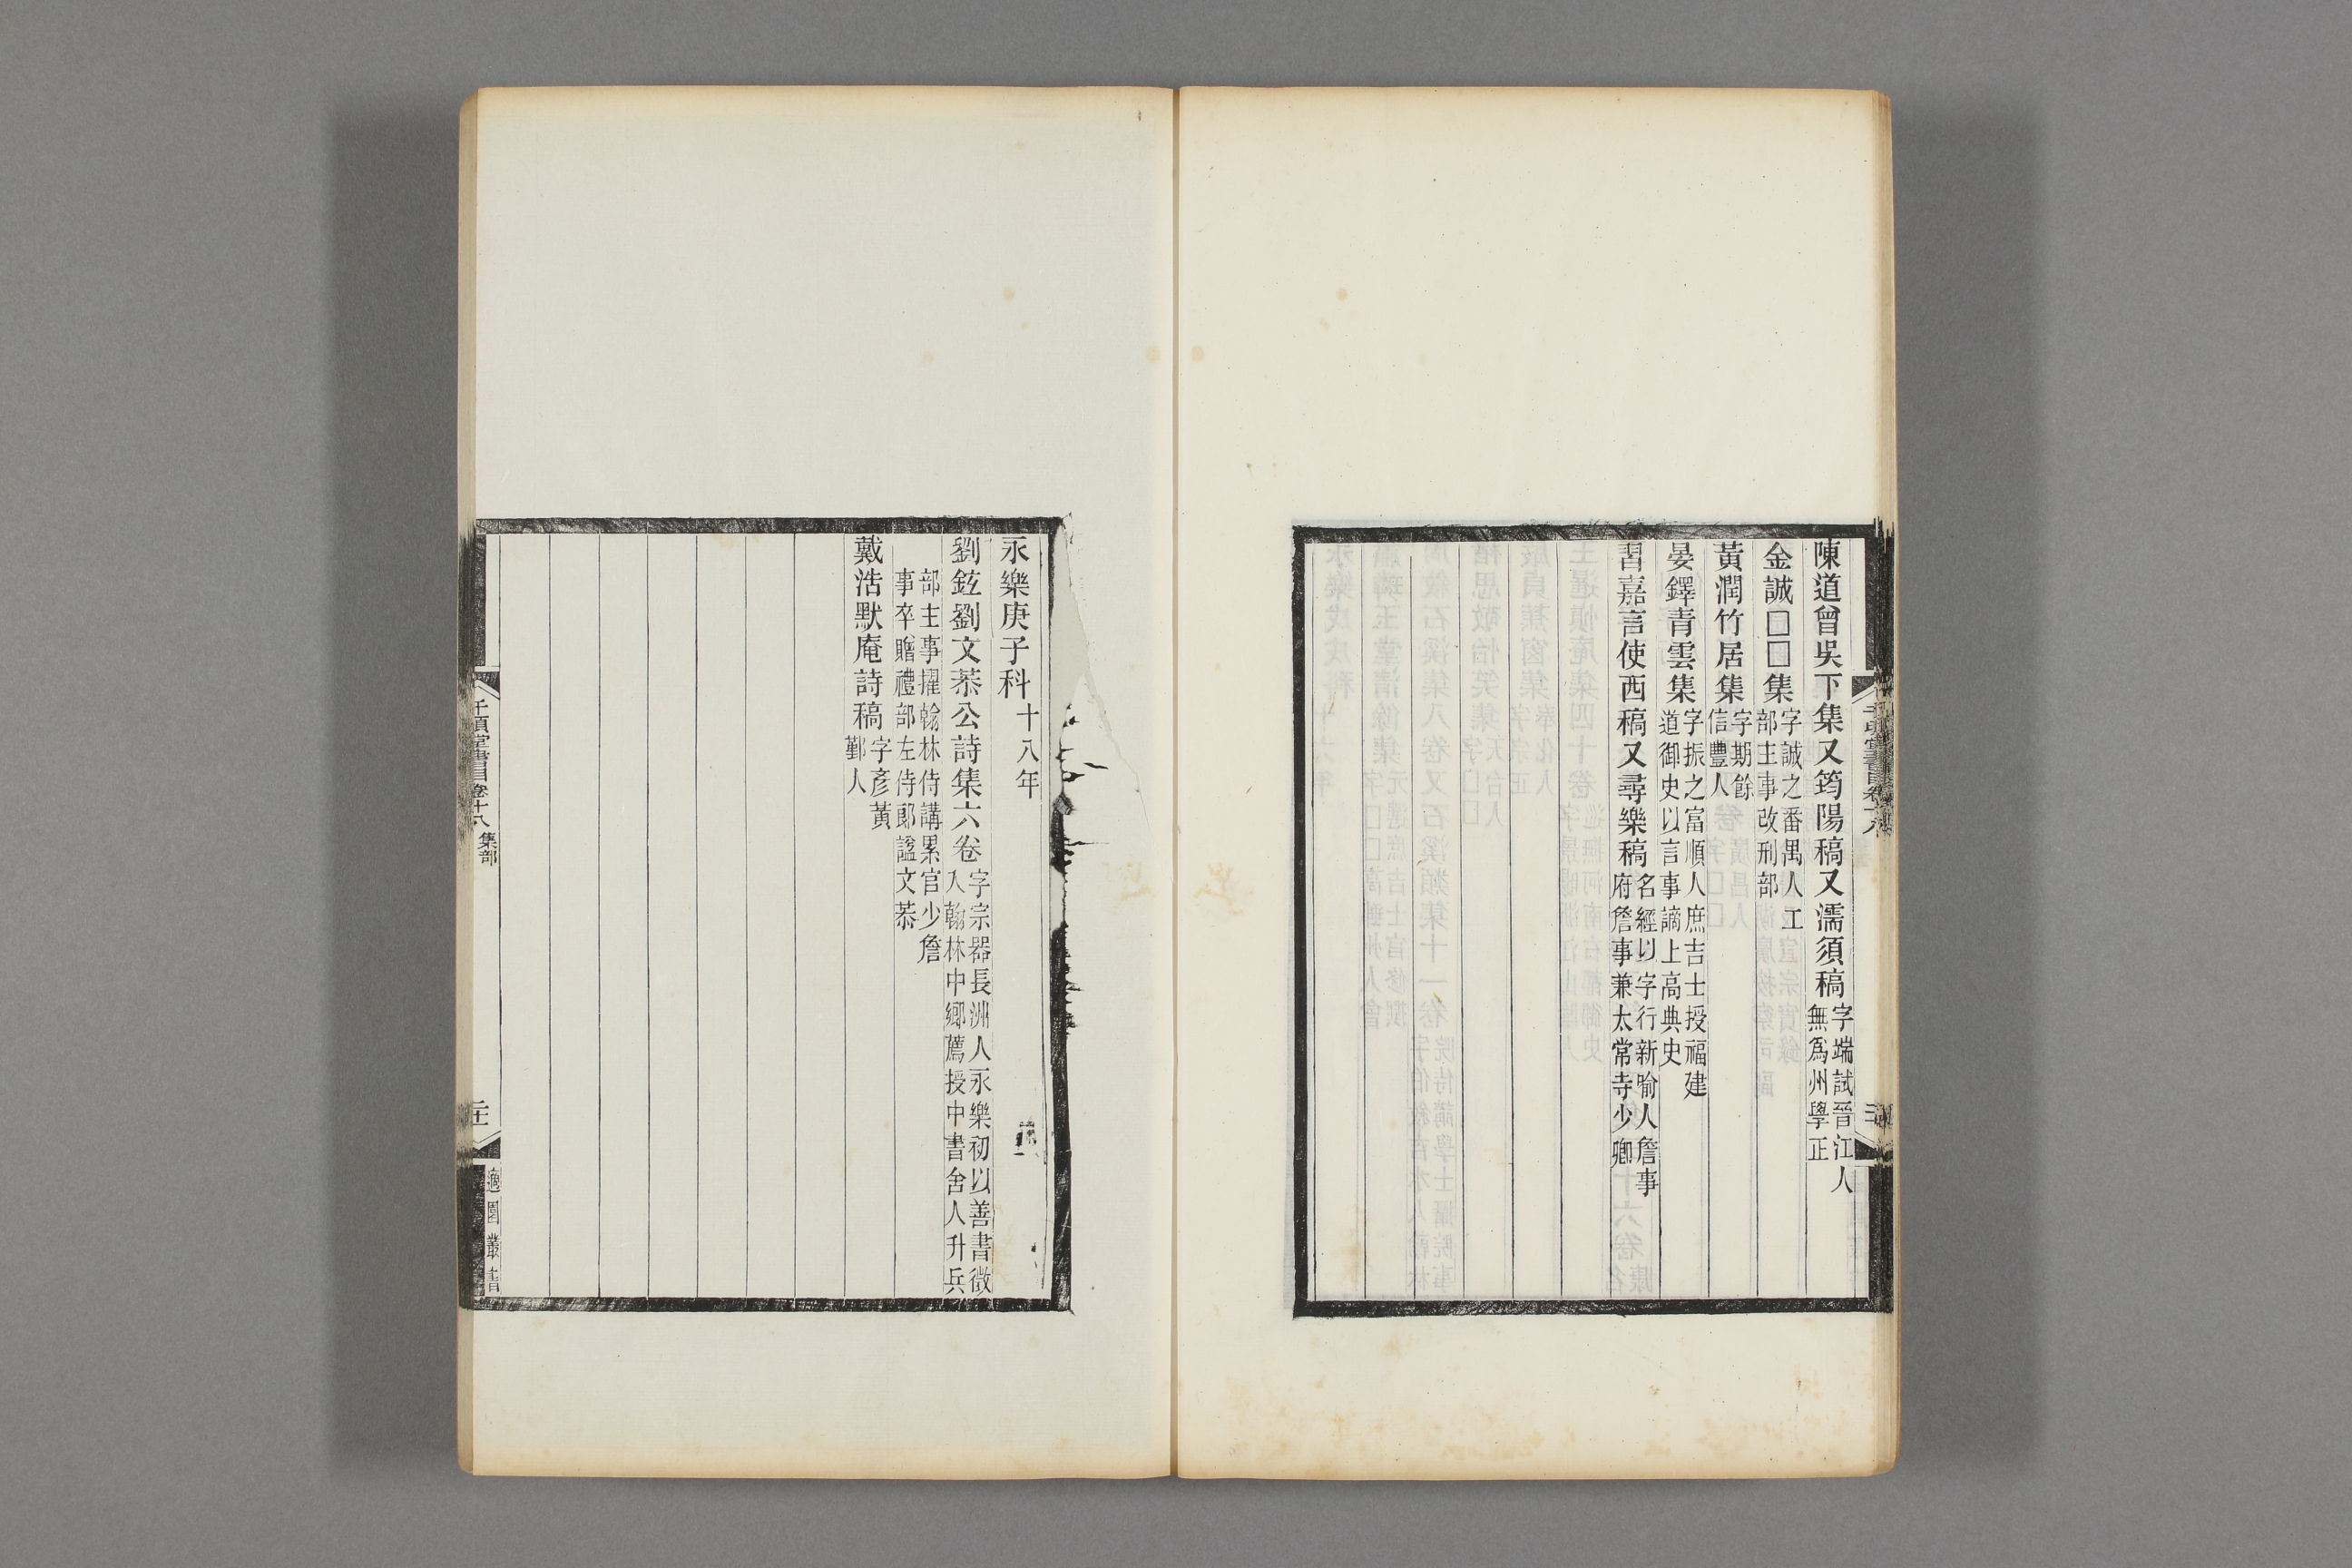 陳道曾吳下集又筠陽稿又濡須稿字端試晉江人
無爲州學正
金誠□□集字誠之番禺人工
部主事改刑部
黃潤竹居集字期餘
信豐人
晏鐸青雲集字振之富順人庶吉士授福建
道御史以言事謫上高典史
習嘉言使西稿又尋樂稿名經以字行新喻人詹事
府詹事兼太常寺少卿
永樂庚子科十八年
劉鉉劉文恭公詩集六卷字宗器長洲人永樂初以善書徵
入翰林中鄉薦授中書舍人升兵
部主事擢翰林侍講累官少詹
事卒贈禮部左侍郎諡文恭
戴浩默庵詩稿字彥黃
鄞人
千頃堂書目卷十八 集部
適園叢書